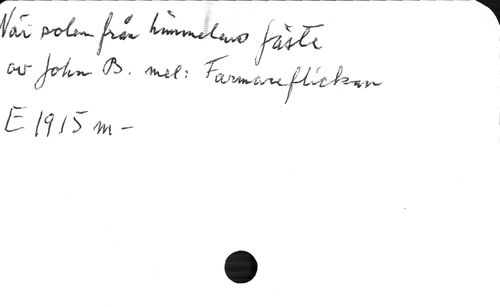 När solen från himmelens fäste
av John B. mel: Farmareflickan
E 1915 m -